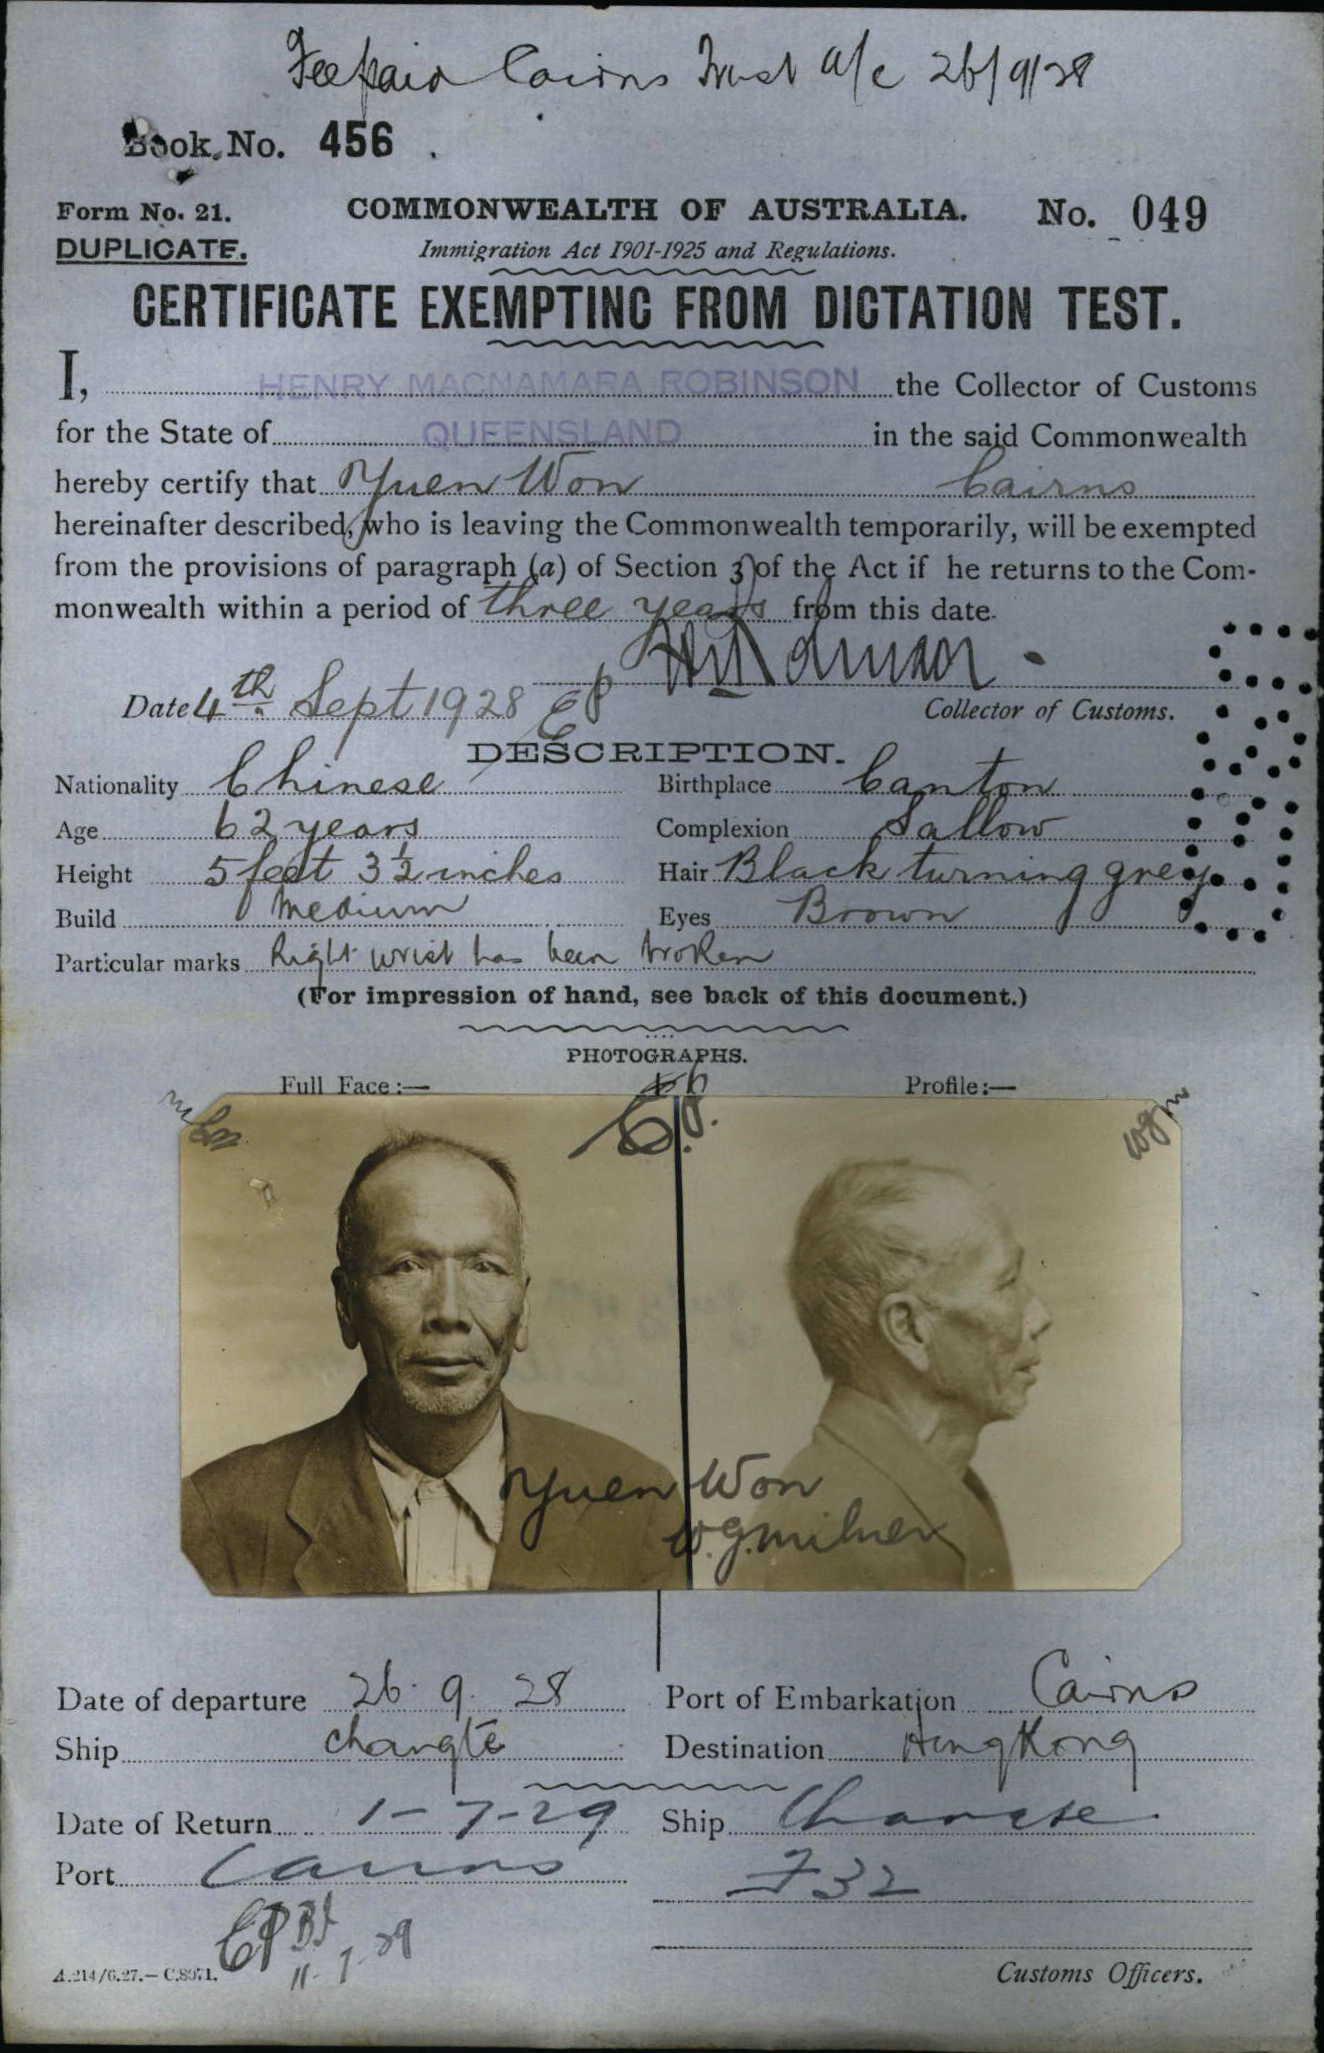 Fee paid Cairns Trust a/c 26/9/28
Book No. 456
Form No. 21. COMMONWEALTH OF AUSTRALIA. No. 049
DUPLICATE. Immigration Act 1901-1925 and Regulations.
CERTIFICATE EXEMPTING FROM DICTATION TEST.
I, HENRY MACNAMARA ROBINSON the Collector of Customs
for the State of QUEENSLAND in the said Commonwealth
hereby certify that Yuen Won Cairns
hereinafter described, who is leaving the Commonwealth temporarily, will be exempted
from the provisions of paragraph (a) of Section 3 of the Act if he returns to the Com-
monwealth within a period of three years from this date.
Date 4th Sept 1928 EP Collector of Customs.
DESCRIPTION.
Nationality Chinese Birthplace Canton
Age 62 years Complexion Sallow
Height 5 feet 3½ inches Hair Black turning grey
Build Medium Eyes Brown
Particular marks Right wrist has been broken
(For impression of hand, see back of this document.)
PHOTOGRAPHS.
Full Face:— Profile:—
wgm
Yuen Won
W.G. Milner
Date of departure 26.9.28 Port of Embarkation Cairns
Ship Changte Destination Hong Kong
Date of Return 1-7-29 Ship Changte
Port Cairns F32
11-7-29
A.214/6.27.—C.8071. Customs Officers.